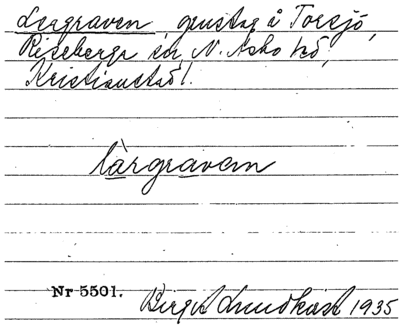 Lergraven, grustag å Torsjö,
Riseberga sn, N. Åsbo hd,
Kristianst. l.
lärgraven
Nr 5501. Birgit Lundkvist 1935